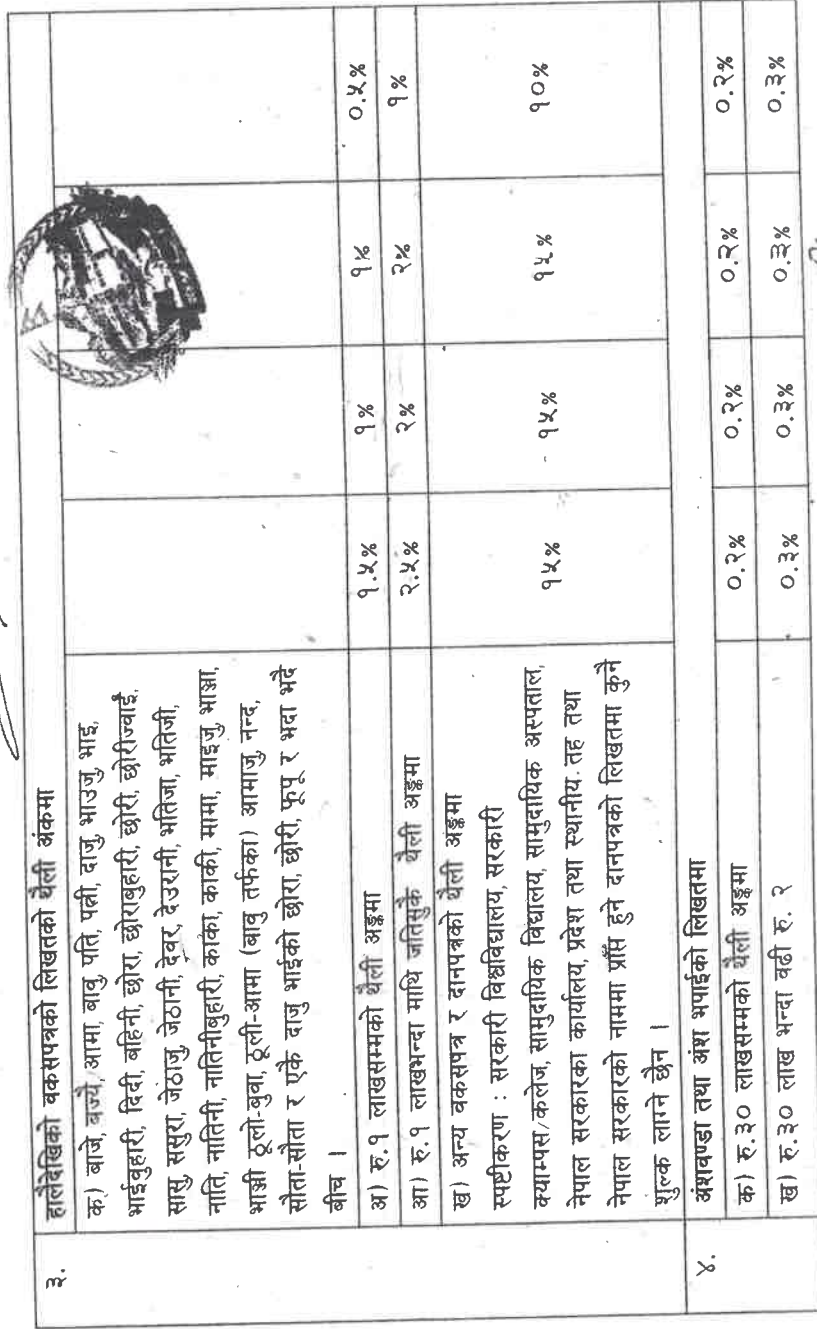 ३.
हालैदेखिको वकसपत्रको लिखतको थैली अंकमा
क) बाजे, बज्यै, आमा, बावु, पति, पत्नी, दाजु, भाउजु, भाइ,
भाईवुहारी, दिदी, बहिनी, छोरा, छोरावुहारी, छोरी, छोरीज्वाई,
सासु, ससुरा, जेठाजु, जेठानी, देवर, देउरानी, भतिजा, भतिजी,
नाति, नातिनी, नातिनीबुहारी, काका, काकी, मामा, माइजु, भाञ्जा,
भाञ्जी ठूलो-बुवा, ठूली-आमा (बावु तर्फका) आमाजु, नन्द,
सौता-सौता र एकै दाजु भाईको छोरा, छोरी, फूपू र भदा भदै
बीच ।
अ) रु.१ लाखसम्मको थैली अङ्कमा १.५% १% १% ०.५%
आ) रु.१ लाखभन्दा माथि जतिसुकै थैली अङ्कमा २.५% २% २% १%
ख) अन्य वकसपत्र र दानपत्रको थैली अङ्कमा
स्पष्टीकरण : सरकारी विश्वविद्यालय, सरकारी
क्याम्पस/कलेज, सामुदायिक विद्यालय, सामुदायिक अस्पताल,
नेपाल सरकारका कार्यालय, प्रदेश तथा स्थानीय तह तथा
नेपाल सरकारको नाममा प्राप्त हुने दानपत्रको लिखतमा कुनै
शुल्क लाग्ने छैन । १५% १५% १५% १०%
४.
अंशवण्डा तथा अंश भपाईको लिखतमा
क) रु.३० लाखसम्मको थैली अङ्कमा ०.२% ०.२% ०.२% ०.२%
ख) रु.३० लाख भन्दा वढी रु. २ ०.३% ०.३% ०.३% ०.३%